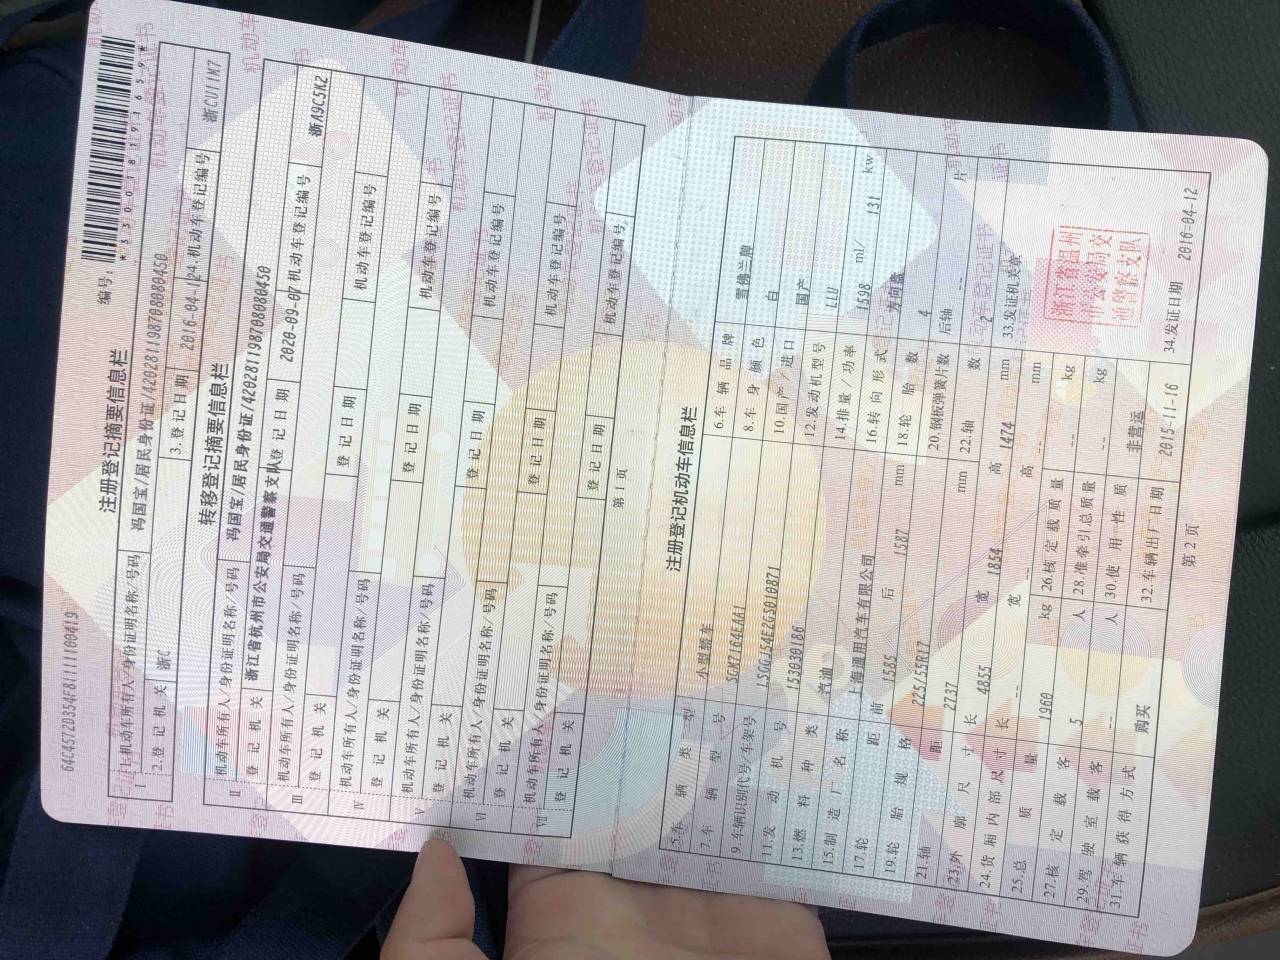 64C4572D354F8111111100419
注册登记摘要信息栏
编号:
*330018191659*
I 1.机动车所有人/身份证明名称/号码 冯国宝/居民身份证/420281198708080450
2.登记机关 浙C 3.登记日期 2016-04-12 4.机动车登记编号 浙CU11M7
转移登记摘要信息栏
II 机动车所有人/身份证明名称/号码 冯国宝/居民身份证/420281198708080450
登记机关 浙江省杭州市公安局交通警察支队 登记日期 2020-09-07 机动车登记编号 浙A9C5K2
III 机动车所有人/身份证明名称/号码
登记机关 登记日期 机动车登记编号
IV 机动车所有人/身份证明名称/号码
登记机关 登记日期 机动车登记编号
V 机动车所有人/身份证明名称/号码
登记机关 登记日期 机动车登记编号
VI 机动车所有人/身份证明名称/号码
登记机关 登记日期 机动车登记编号
VII 机动车所有人/身份证明名称/号码
登记机关 登记日期 机动车登记编号
第1页
注册登记机动车信息栏
5.车辆类型 小型轿车 6.车辆品牌 雪佛兰牌
7.车辆型号 SGM7164EAA1 8.车身颜色 白
9.车辆识别代号/车架号 LSGGJ54E2GS010871 10.国产/进口 国产
11.发动机号 153030186 12.发动机型号 LLU
13.燃料种类 汽油 14.排量/功率 1598 ml/ 131 kw
15.制造厂名称 上海通用汽车有限公司 16.转向形式 方向盘
17.轮距 前 1585 后 1587 mm 18.轮胎数 4
19.轮胎规格 225/55R17 20.钢板弹簧片数 后轴 -- 片
21.轴距 2737 mm 22.轴数 2
23.外廓尺寸 长 4855 宽 1854 高 1474 mm 33.发证机关章
24.货厢内部尺寸 长 -- 宽 -- 高 -- mm
25.总质量 1960 kg 26.核定载质量 -- kg
27.核定载客 5 人 28.准牵引总质量 -- kg
29.驾驶室载客 -- 人 30.使用性质 非营运
31.车辆获得方式 购买 32.车辆出厂日期 2015-11-16 34.发证日期 2016-04-12
浙江省温州
市公安局交
通警察支队
第2页